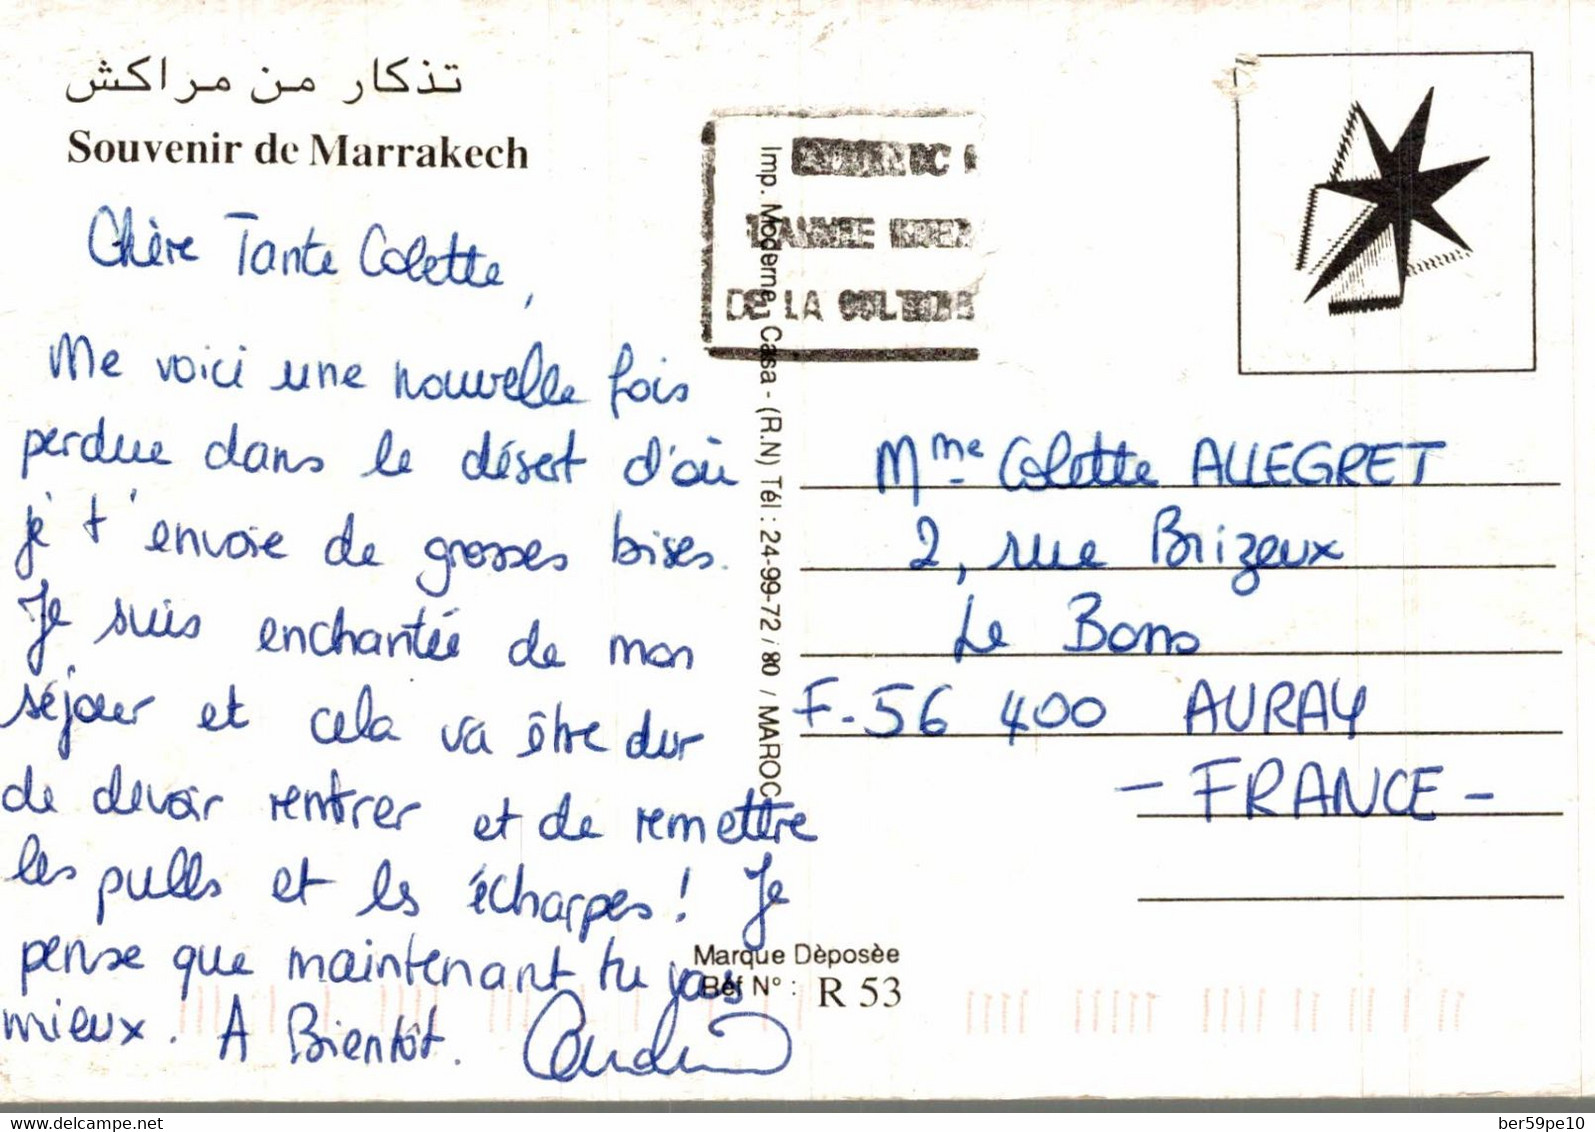 تذكار من مراكش
Souvenir de Marrakech
Chère Tante Colette,
Me voici une nouvelle fois
perdue dans le désert d'où
je t'envoie de grosses bises.
Je suis enchantée de mon
séjour et cela va être dur
de devoir rentrer et de remettre
les pulls et les écharpes ! Je
pense que maintenant tu vas
mieux. A Bientôt.
L'ANNEE
DE LA
Imp. Moderne, Casa - (R.N) Tél : 24-99-72 / 80 / MAROC
Mme Colette ALLEGRET
2, rue Brizeux
Le Bono
F-56 400 AURAY
- FRANCE -
Marque Dèposèe
Réf N° : R 53
delcampe.net
ber59pe10